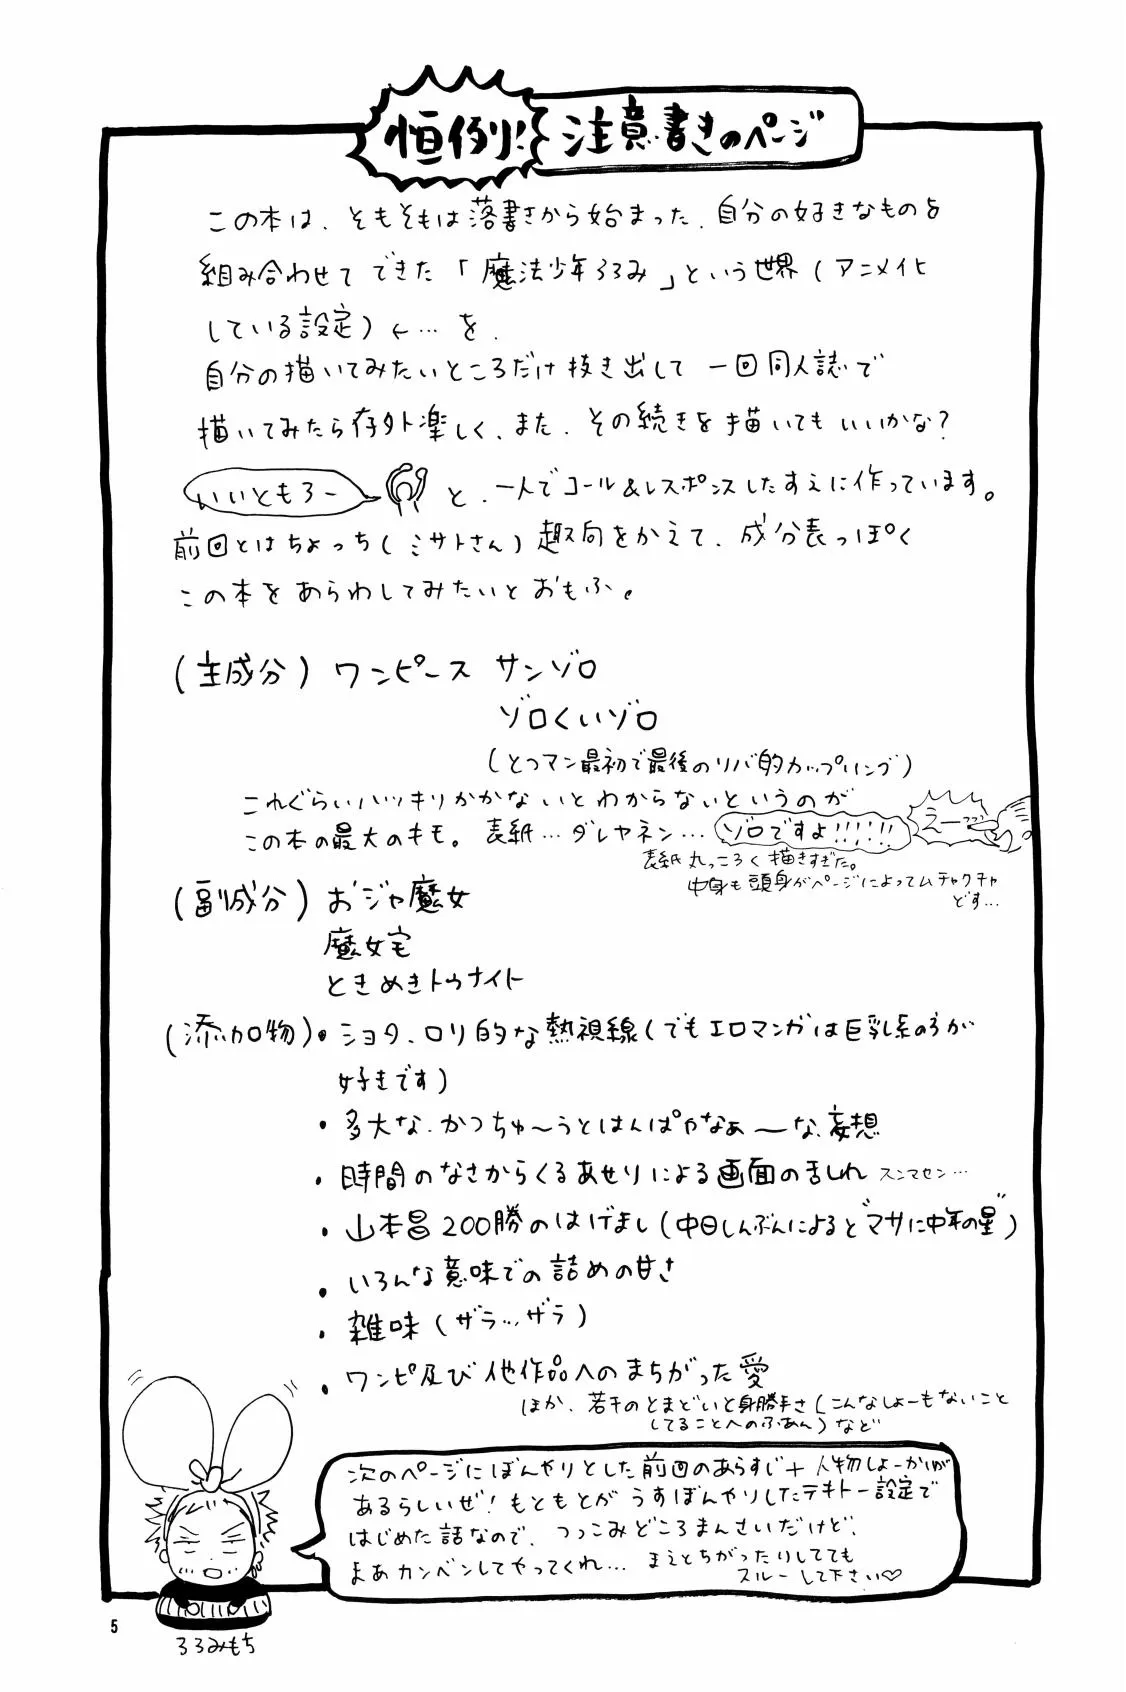 恒例!
注意書きのページ
この本は、そもそもは落書きから始まった、自分の好きなものを
組み合わせてできた「魔法少年ろろみ」という世界(アニメ化
している設定)←…を、
自分の描いてみたいところだけ抜き出して一回同人誌で
描いてみたら存外楽しく、また、その続きを描いてもいいかな?
いいともろー
と、一人でコール&レスポンスしたすえに作っています。
前回とはちょっち(ミサトさん)趣向をかえて、成分表っぽく
この本をあらわしてみたいとおもふ。
(主成分)ワンピース サンゾロ
ゾロくいゾロ
(とつマン最初で最後のリバ的カップリング)
これぐらいハッキリかかないとわからないというのが
この本の最大のキモ。表紙…ダレヤネン…
ゾロですよ!!!!!!
えーっっっ
表紙丸っころく描きすぎた。
中身も頭身がページによってムチャクチャ
どす…
(副成分)おジャ魔女
魔女宅
ときめきトゥナイト
(添加物)・ショタ、ロリ的な熱視線(でもエロマンガは巨乳系の方が
好きです)
・多大な、かつちゅ〜うとはんぱやなぁーな、妄想
・時間のなさからくるあせりによる画面の乱れ スンマセン…
・山本昌200勝のはげまし(中日しんぶんによると"マサに中年の星")
・いろんな意味での詰めの甘さ
・雑味(ザラ…ザラ)
・ワンピ及び他作品へのまちがった愛
ほか、若干のとまどいと身勝手さ(こんなしょーもないこと
してることへのふあん)など
次のページにぼんやりとした前回のあらすじ+人物しょーかいが
あるらしいぜ!もともとがうすぼんやりしたテキトー設定で
はじめた話なので、つっこみどころまんさいだけど、
まあカンベンしてやってくれ…まえとちがったりしてても
スルーして下さい♡
ろろみもち
5